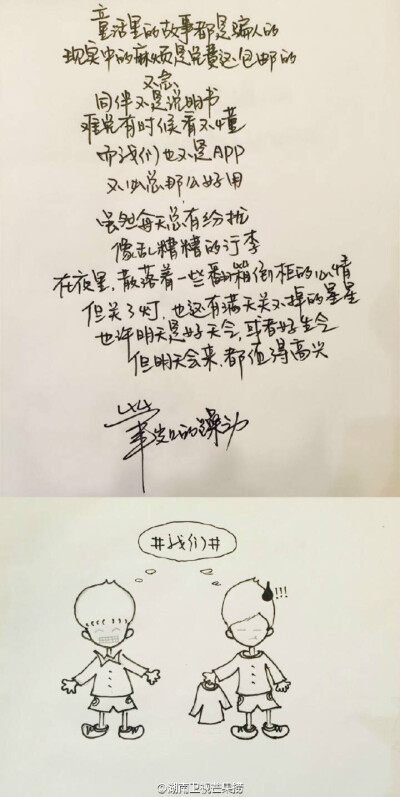 童话里的故事都是骗人的
现实中的麻烦是免费还包邮的
不急、
同伴不是说明书
难免有时候看不懂
而我们也不是APP
不必总那么好用
虽然每天总有纷扰
像乱糟糟的行李
在夜里,散落着一些翻箱倒柜的心情
但关了灯,也还有满天关不掉的星星
也许明天是好天气,或者好生气
但明天会来,都值得高兴
的躁动
#我们#
!!!
@湖南卫视芒果捞